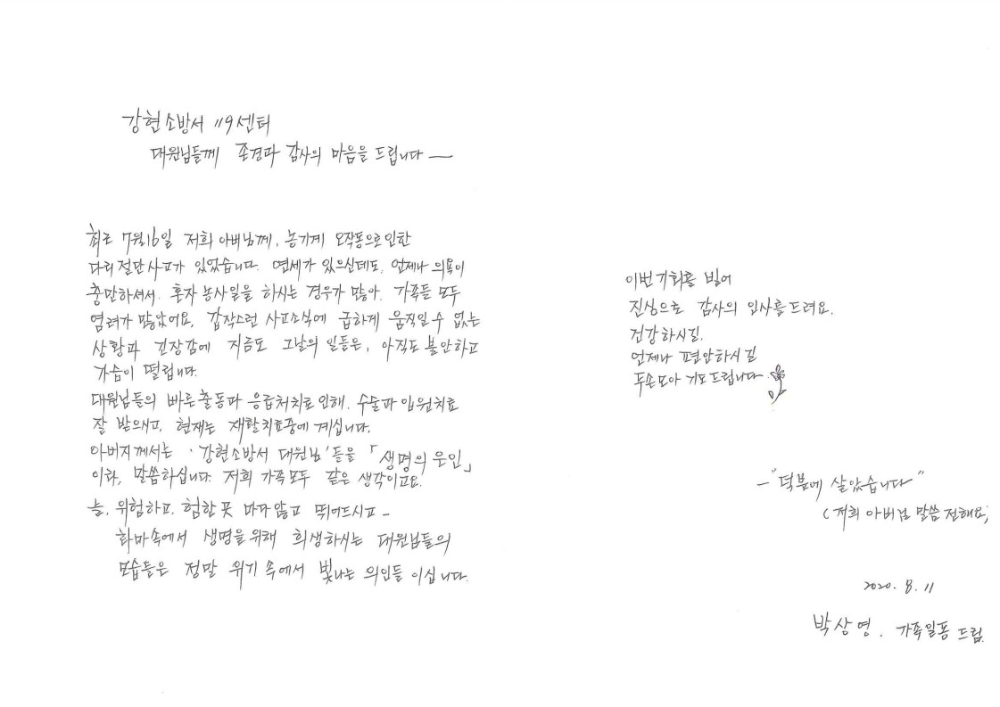 강현소방서 119센터
대원님들께 존경과 감사의 마음을 드립니다 —
최근 7월16일 저희 아버님께, 농기계 오작동으로인한
다리절단사고가 있었습니다. 연세가 있으신데도, 언제나 의욕이
충만하셔서, 혼자 농사일을 하시는 경우가 많아, 가족들 모두
염려가 많았어요, 갑작스런 사고소식에 급하게 움직일 수 없는
상황과 긴장감에 지금도 그날의 일들은, 아직도 불안하고
가슴이 떨립니다.
대원님들의 빠른 출동과 응급처치로 인해, 수술과 입원치료
잘 받으시고, 현재는 재활치료중에 계십니다.
아버지께서는 '강현소방서 대원님'들을 「생명의 은인」
이라, 말씀하십니다. 저희 가족모두 같은 생각이고요.
늘, 위험하고, 험한 곳 마다 않고 뛰어드시고 –
화마속에서 생명을 위해 희생하시는 대원님들의
모습들은 정말 위기 속에서 빛나는 의인들 이십니다.
이번기회를 빌어
진심으로 감사의 인사를 드려요.
건강하시길,
언제나 평안하시길
두손모아 기도드립니다.
– "덕분에 살았습니다"
(저희 아버님 말씀 전해요)
2020. 8. 11
박상영, 가족일동 드림.